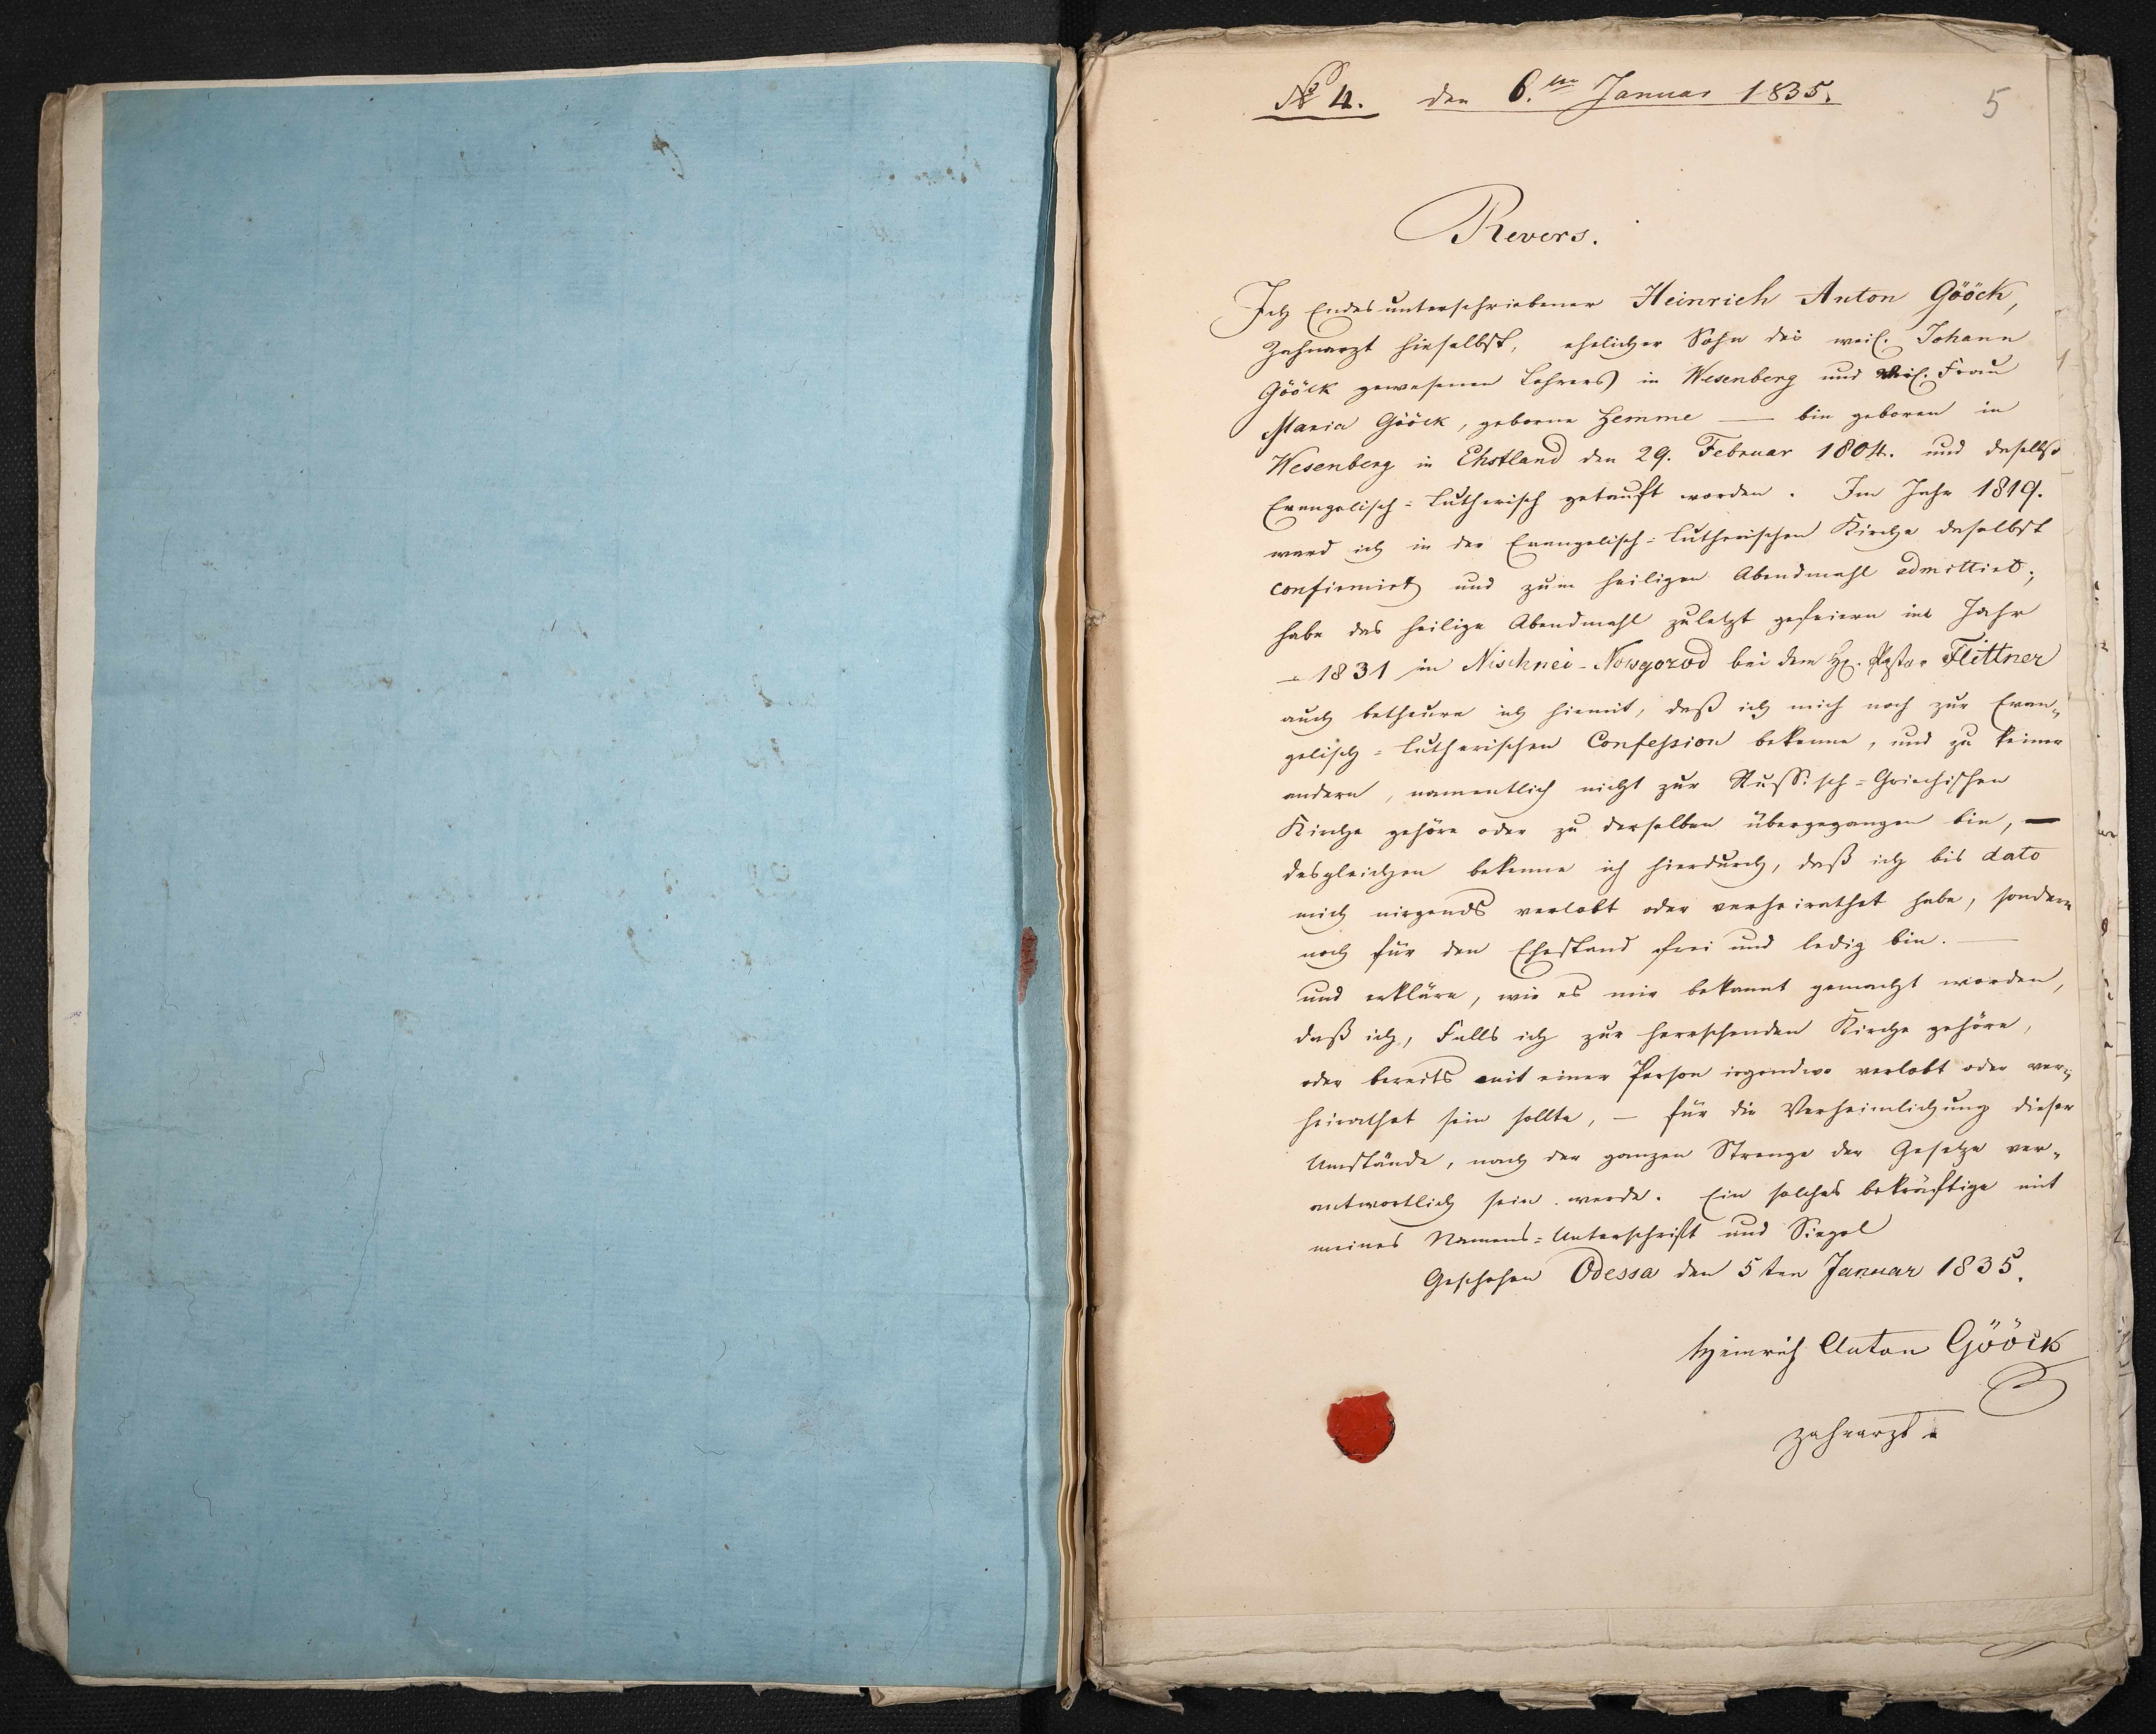 № 4. den 6.ten Januar 1835.
5
Revers.
Ich Endesunterschriebener Heinrich Anton Gööck,
Zahnarzt hieselbst, ehelicher Sohn des weil. Johann
Gööck gewesenen Lehrers in Wesenberg und weil. Frau
Maria Gööck, geborne Hemme — bin geboren in
Wesenberg in Ehstland den 29. Februar 1804. und daselbst
Evangelisch=Lutherisch getauft worden. Im Jahr 1819.
ward ich in der Evangelisch=Lutherischen Kirche daselbst
confirmirt und zum heiligen Abendmahl admittirt;
habe das heilige Abendmahl zuletzt gefeiern im Jahr
1831 in Nischnei-Nowgorod bei dem H. Pastor Flittner
auch betheure ich hiemit, daß ich mich noch zur Evan„
gelisch=lutherischen Confession bekenne, und zu keiner
andern, namentlich nicht zur Russisch=Griechischen
Kirche gehöre oder zu derselben übergegangen bin, —
desgleichen bekenne ich hierdurch, daß ich bis dato
mich nirgends verlobt oder verheirathet habe, sondern
noch für den Ehestand frei und ledig bin. —
und erkläre, wie es mir bekannt gemacht worden,
daß ich, Falls ich zur herrschenden Kirche gehöre,
oder bereits mit einer Person irgendwo verlobt oder ver„
heirathet sein sollte, — für die Verheimlichung dieser
Umstände, nach der ganzen Strenge der Gesetze ver„
antwortlich sein werde. Ein solches bekräftige mit
meines Namens=Unterschrift und Siegel
Geschehen Odessa den 5ten Januar 1835.
Heinrich Anton Gööck
Zahnarzt.